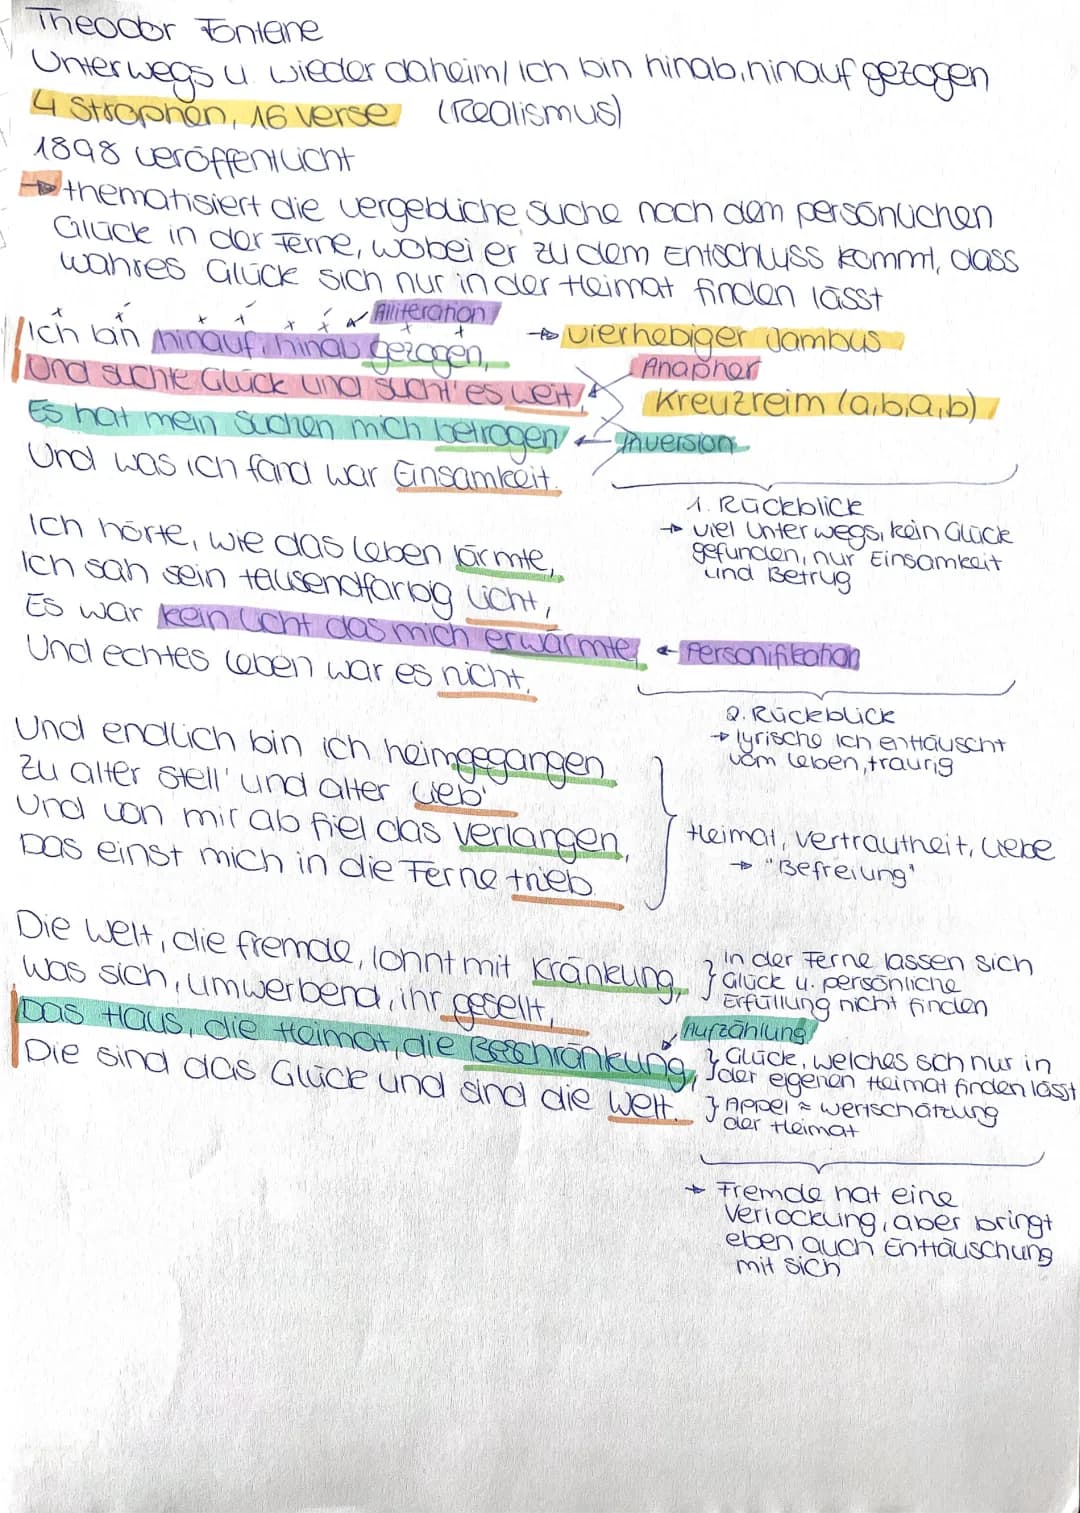 Theodor Fontane
Unterwegs u. wieder daheim/ Ich bin hinab, hinauf gezogen
4 Strophen, 16 Verse (Realismus)
1898 veröffentlicht
→ thematisiert die vergebliche Suche nach dem persönlichen
Glück in der Ferne, wobei er zu dem Entschluss kommt, dass
wahres Glück sich nur in der Heimat finden lässt
Alliteration
Ich bin hinauf, hinab gezogen,
→ vierhebiger Jambus
Und suchte Glück und sucht' es weit,
Anapher
Kreuzreim (a,b,a,b)
Es hat mein Suchen mich betrogen
← Inversion
Und was ich fand war Einsamkeit.
1. Rückblick
→ viel unterwegs, kein Glück
gefunden, nur Einsamkeit
und Betrug
Ich hörte, wie das Leben lärmte,
Ich sah sein tausendfarbig Licht,
Es war kein Licht das mich erwärmte,
← Personifikation
Und echtes Leben war es nicht.
2. Rückblick
→ lyrische Ich enttäuscht
vom Leben, traurig
Und endlich bin ich heimgegangen
Zu alter Stell' und alter Lieb'
Und von mir ab fiel das Verlangen,
Das einst mich in die Ferne trieb.
Heimat, Vertrautheit, Liebe
→ "Befreiung"
Die Welt, die fremde, lohnt mit Kränkung,
Was sich, umwerbend, ihr gesellt,
} In der Ferne lassen sich
Glück u. persönliche
Erfüllung nicht finden
Aufzählung
Das Haus, die Heimat, die Beschränkung,
Die sind das Glück und sind die Welt.
} Glück, welches sich nur in
der eigenen Heimat finden lässt
} Appel ≈ Wertschätzung
der Heimat
→ Fremde hat eine
Verlockung, aber bringt
eben auch Enttäuschung
mit sich